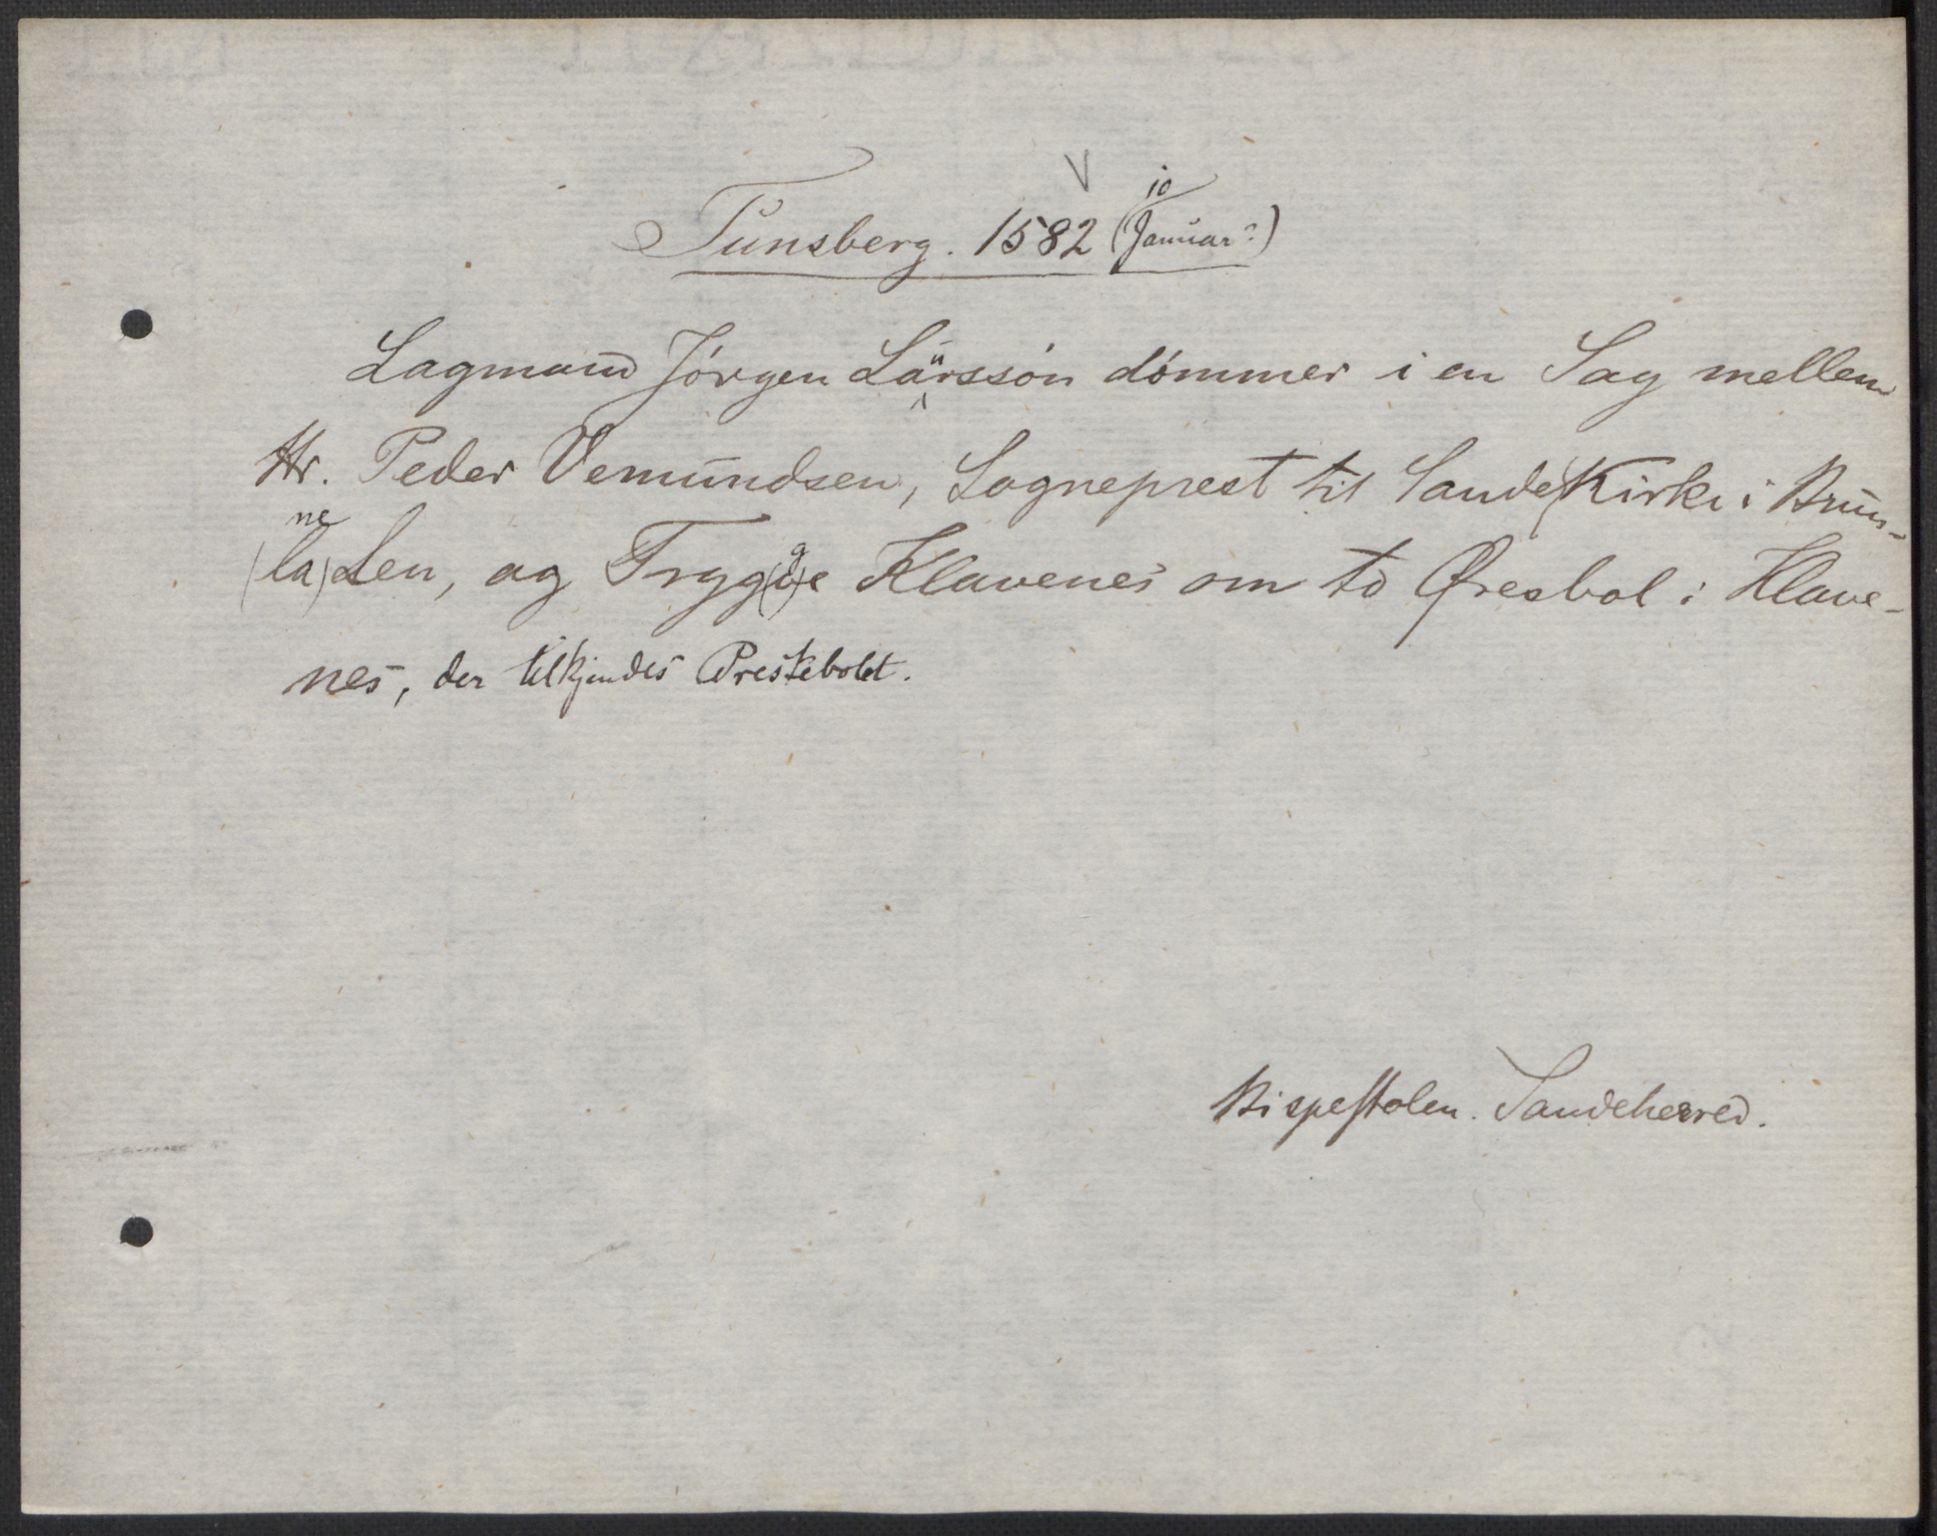 Tunsberg. 1582 (10 Januar?)
Lagmand Jörgen Lärssön dömmer i en Sag mellem
Hr. Peder Vemundsen, Sogneprest til Sande Kirke i Brun-
(la) ne Len, og Tryg(g)ge Klavenes om to Øresbol i Klave-
nes, der tilkjendes Prestebolet.
Bispestolen. Sandeherred.